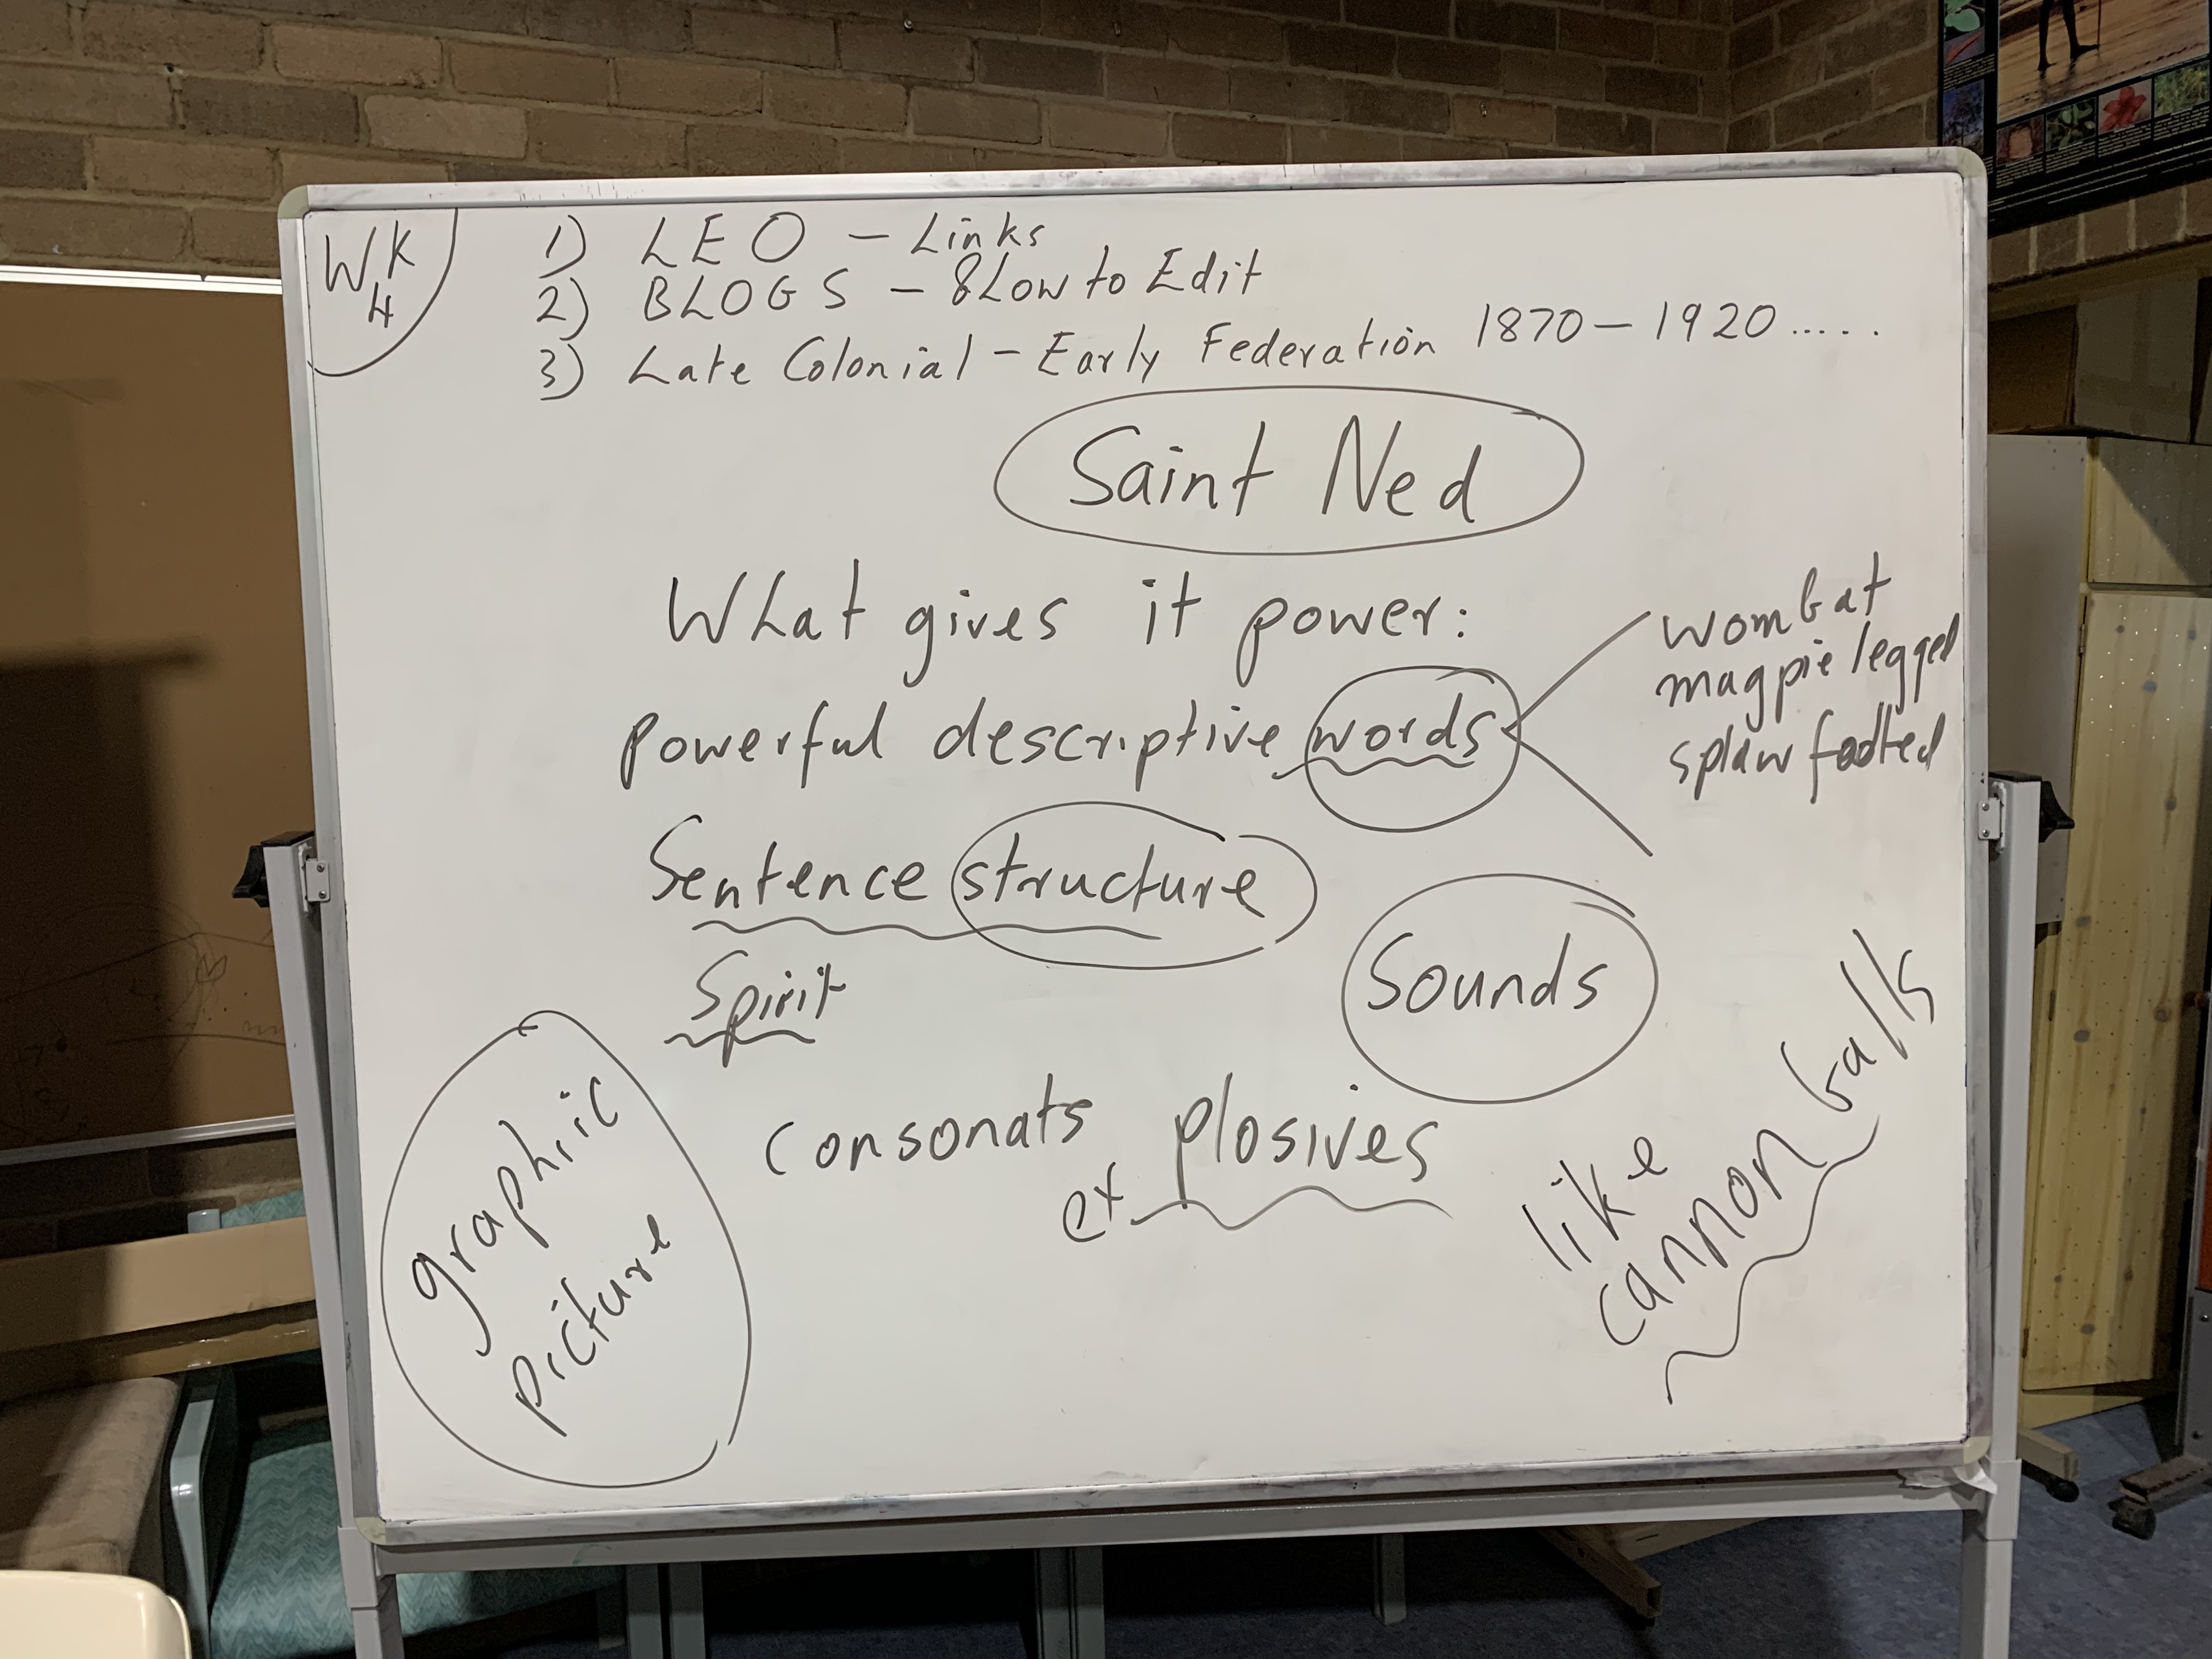 WK 4
1) LEO - Links
2) BLOGS - & How to Edit
3) Late Colonial - Early Federation 1870-1920.....
Saint Ned
What gives it power:
powerful descriptive words
wombat
magpie legged
splaw footed
Sentence structure
Spirit
Sounds
consonats plosives
ex
like
cannon balls
graphiic
picture